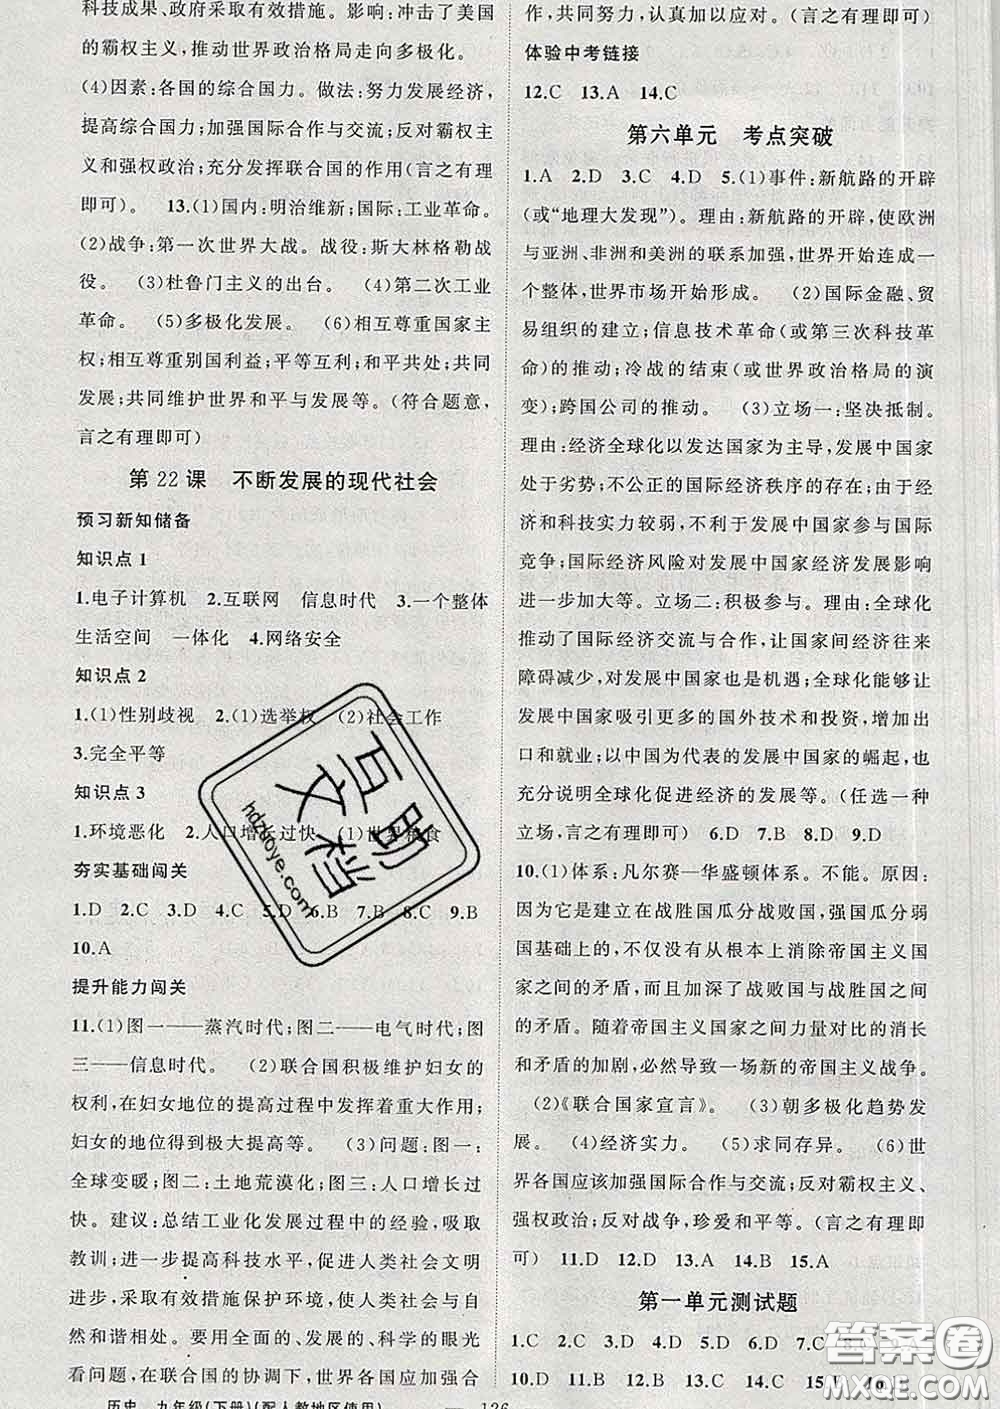 科技成果、政府采取有效措施。影响:冲击了美国
的霸权主义,推动世界政治格局走向多极化。
(4)因素:各国的综合国力。做法:努力发展经济,
提高综合国力;加强国际合作与交流;反对霸权主
义和强权政治;充分发挥联合国的作用(言之有理
即可)。 13.(1)国内:明治维新;国际:工业革命。
(2)战争:第一次世界大战。战役:斯大林格勒战
役。 (3)杜鲁门主义的出台。 (4)第二次工业
革命。 (5)多极化发展。 (6)相互尊重国家主
权;相互尊重别国利益;平等互利;和平共处;共同
发展;共同维护世界和平与发展等。(符合题意,
言之有理即可)
第22课 不断发展的现代社会
预习新知储备
知识点1
1.电子计算机 2.互联网 信息时代 3.一个整体
生活空间 一体化 4.网络安全
知识点2
1.(1)性别歧视 2.(1)选举权 (2)社会工作
3.完全平等
知识点3
1.环境恶化 2.人口增长过快 (1)世界粮食
夯实基础闯关
1.D 2.C 3.D 4.C 5.D 6.B 7.B 8.C 9.B
10.A
提升能力闯关
11.(1)图一——蒸汽时代;图二——电气时代;图
三——信息时代。 (2)联合国积极维护妇女的
权利,在妇女地位的提高过程中发挥着重大作用;
妇女的地位得到极大提高等。 (3)问题:图一:
全球变暖;图二:土地荒漠化;图三:人口增长过
快。建议:总结工业化发展过程中的经验,吸取
教训;进一步提高科技水平,促进人类社会文明
进步,采取有效措施保护环境,使人类社会与自
然和谐相处。要用全面的、发展的、科学的眼光
看问题,在联合国的协调下,世界各国应加强合
作,共同努力,认真加以应对。(言之有理即可)
体验中考链接
12.C 13.A 14.C
第六单元 考点突破
1.A 2.D 3.C 4.D 5.(1)事件:新航路的开辟
(或“地理大发现”)。理由:新航路的开辟,使欧洲
与亚洲、非洲和美洲的联系加强,世界开始连成一
个整体,世界市场开始形成。 (2)国际金融、贸
易组织的建立;信息技术革命(或第三次科技革
命)的推动;冷战的结束(或世界政治格局的演
变);跨国公司的推动。 (3)立场一:坚决抵制。
理由:经济全球化以发达国家为主导,发展中国家
处于劣势;不公正的国际经济秩序的存在;由于经
济和科技实力较弱,不利于发展中国家参与国际
竞争;国际经济风险对发展中国家经济发展影响
进一步加大等。立场二:积极参与。理由:全球化
推动了国际经济交流与合作,让国家间经济往来
障碍减少,对发展中国家也是机遇;全球化能够让
发展中国家吸引更多的国外技术和投资,增加出
口和就业;以中国为代表的发展中国家的崛起,也
充分说明全球化促进经济的发展等。(任选一种
立场,言之有理即可) 6.D 7.B 8.D 9.D
10.(1)体系:凡尔赛—华盛顿体系。不能。原因:
因为它是建立在战胜国瓜分战败国,强国瓜分弱
国基础上的,不仅没有从根本上消除帝国主义国
家之间的矛盾,而且加深了战败国与战胜国之间
的矛盾。随着帝国主义国家之间力量对比的消长
和矛盾的加剧,必然导致一场新的帝国主义战争。
(2)《联合国家宣言》。 (3)朝多极化趋势发
展。 (4)经济实力。 (5)求同存异。 (6)世
界各国应该加强国际合作与交流;反对霸权主义、
强权政治;反对战争,珍爱和平等。(言之有理即
可) 11.D 12.D 13.D 14.B 15.A
第一单元测试题
1.C 2.C 3.D 4.D 5.D 6.D 7.C
9.D 10.D 11.A 12.C 13.C 14.C
历史 九年级(下册)(配人教地区使用) 126
互助文档
hdzuoye.com
答案圈
MXQE.COM